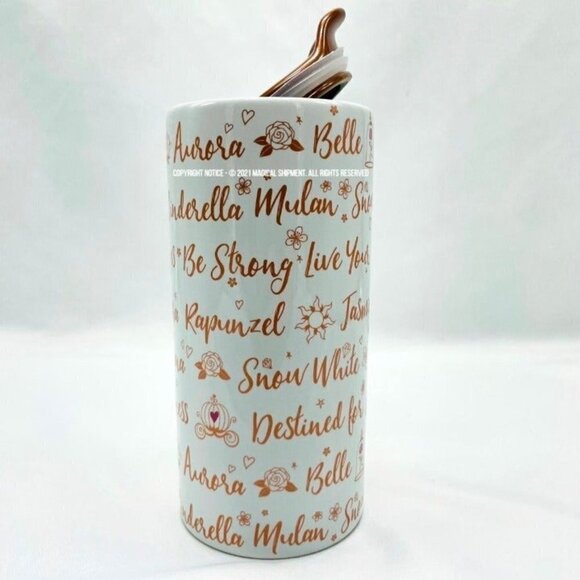 Aurora Belle
COPYRIGHT NOTICE - © 2021 MAGICAL SHIPMENT. ALL RIGHTS RESERVED
nderella Mulan Sno
s Be Strong Live Your
a Rapunzel Jasm
na Snow White
ess Destined for
Aurora Belle
nderella Mulan Sno